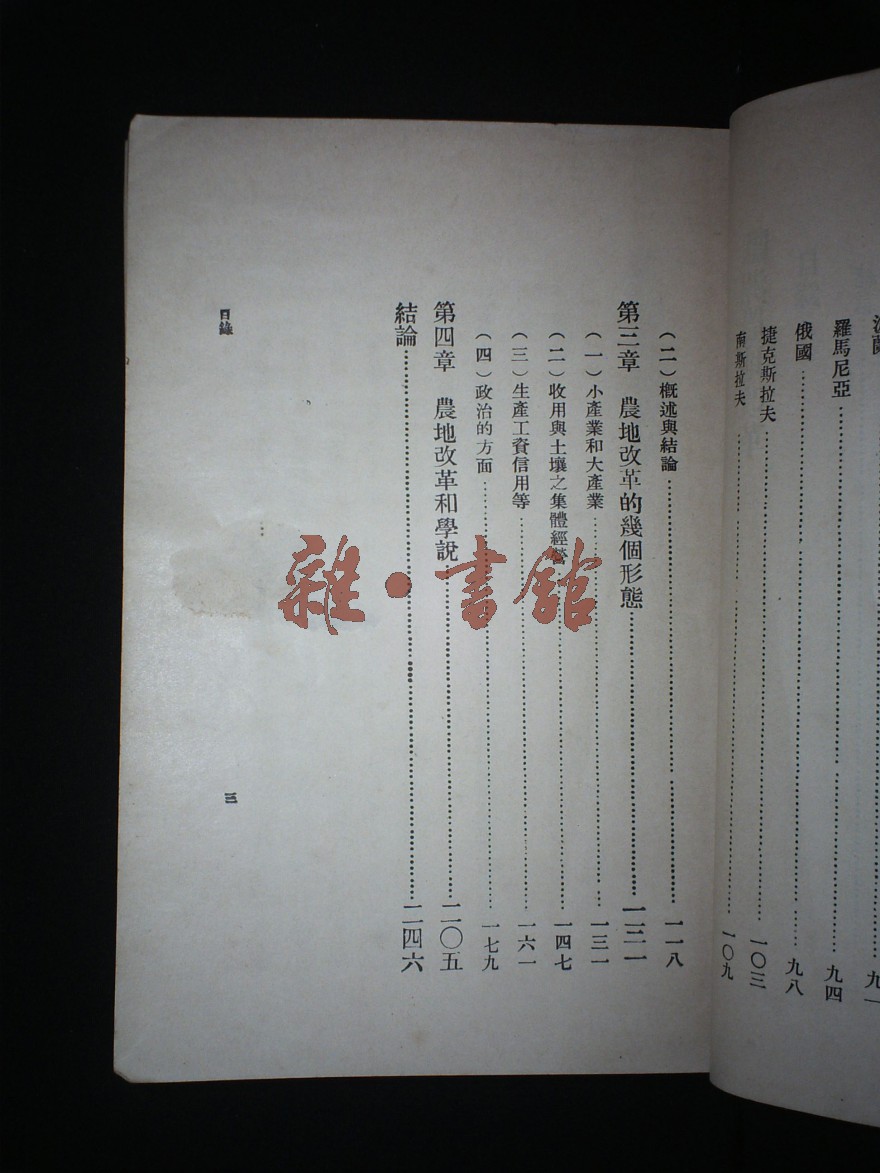 羅馬尼亞……九四
俄國……九八
捷克斯拉夫……一〇三
南斯拉夫……一〇九
(二)概述與結論……一一八
第三章 農地改革的幾個形態……一三一
(一)小產業和大產業……一三一
(二)收用與土壤之集體經營……一四七
(三)生產工資信用等……一六一
(四)政治的方面……一七九
第四章 農地改革和學說……二〇五
結論……二四六
目錄
三
雜·書館